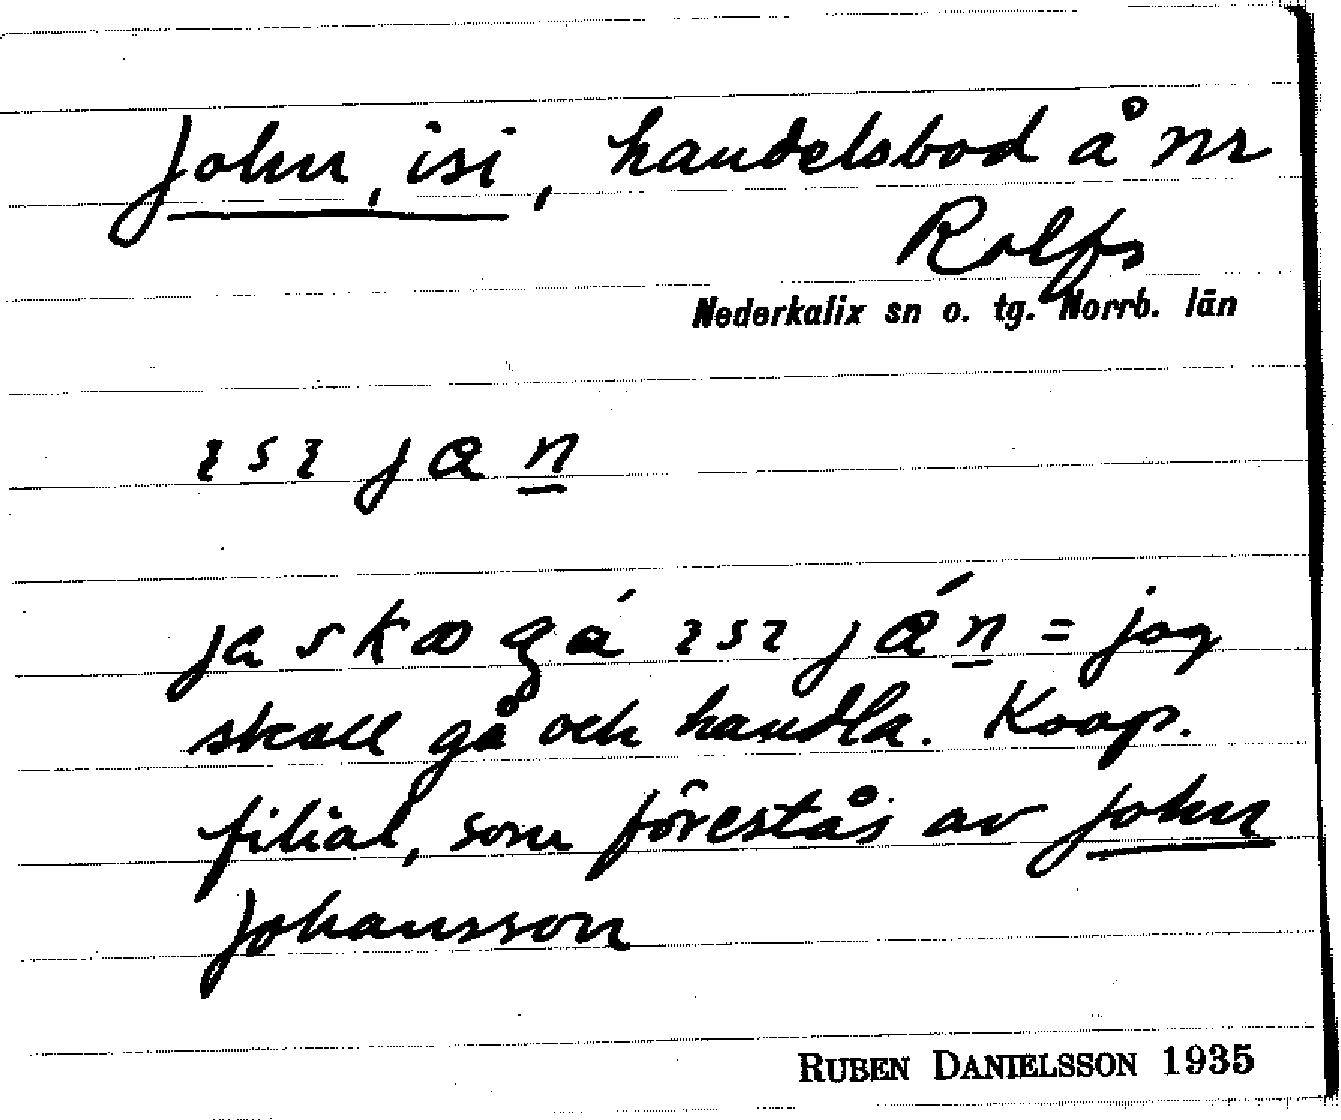 John, isi, handelsbod å nr
Rolfs
Nederkalix sn o. tg. Norrb. län
ɩsɩ jæn
ja ska gá ɩsɩ jǽn = jog
skall gå och handla. Koop.
filial, som förestås av John
Johansson
RUBEN DANIELSSON 1935